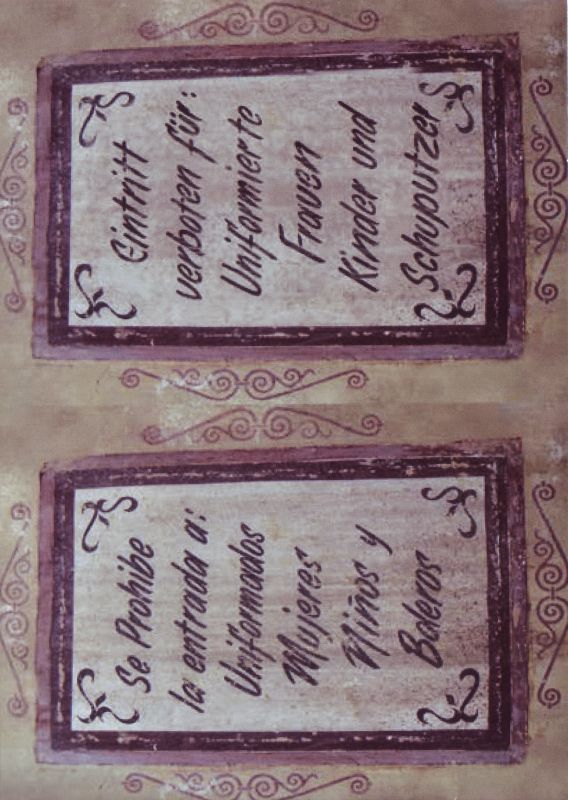 Se Prohibe
la entrada a:
Uniformados
Mujeres
Niños y
Boleros
Eintritt
verboten für:
Uniformierte
Frauen
Kinder und
Schuputzer